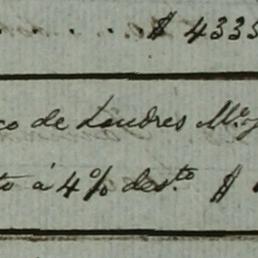 . . . . . $ 4335
co de Londres Mo.
to á 4% desto. $